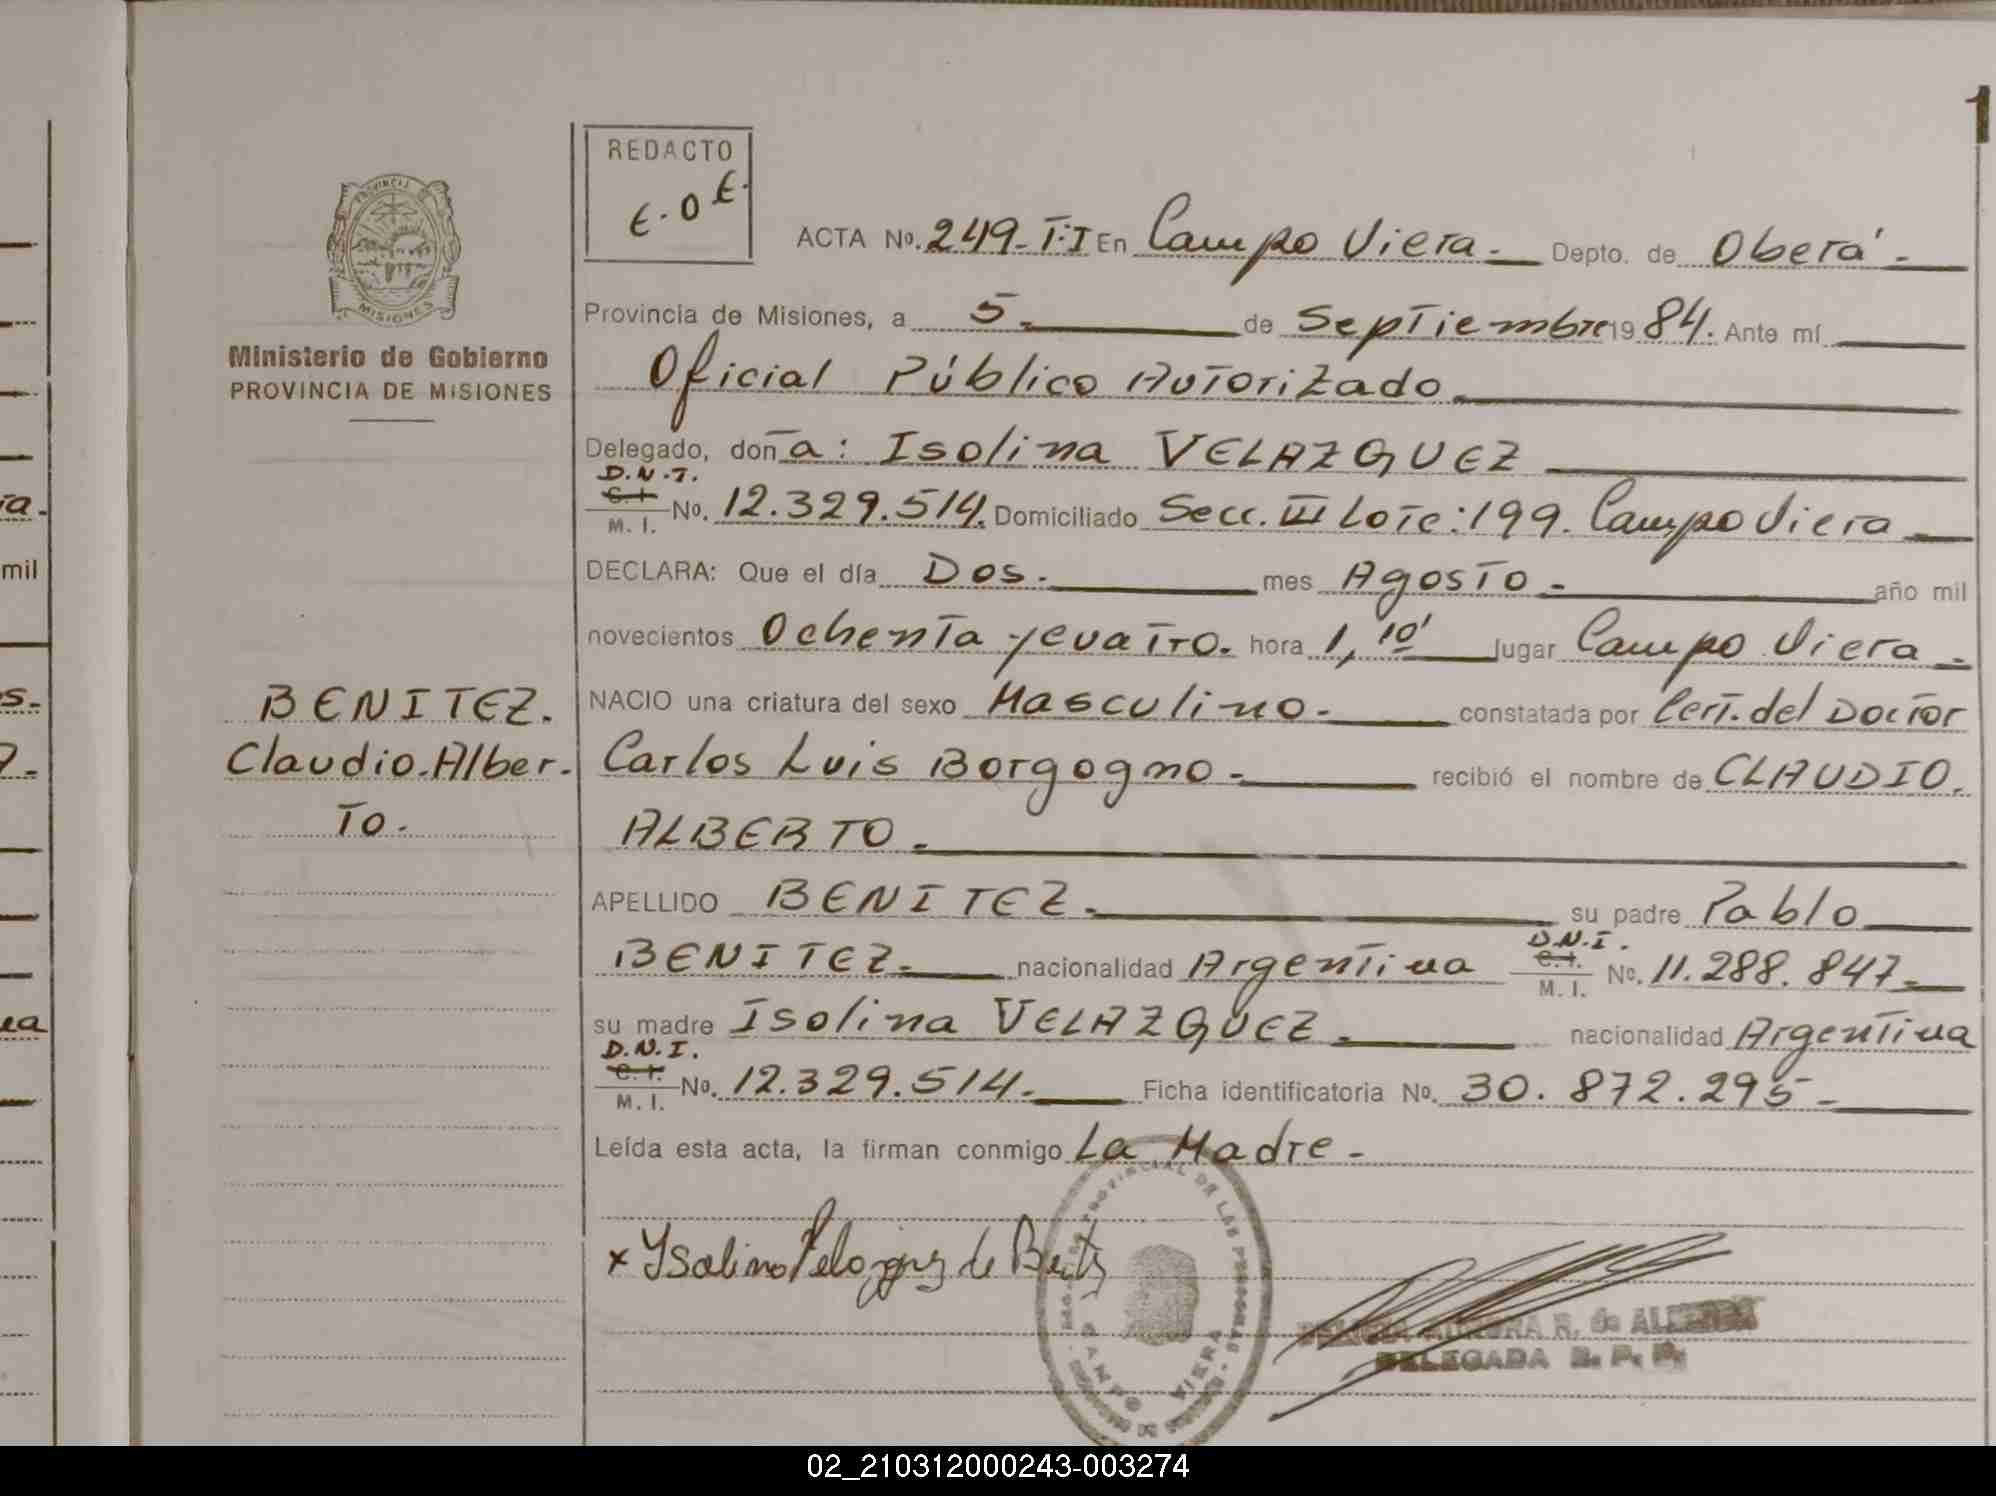 1
REDACTO
E.O.E.
PROVINCIA
MISIONES
Ministerio de Gobierno
PROVINCIA DE MISIONES
ACTA No. 249-T.I En Campo Viera.- Depto. de Oberá.-
Provincia de Misiones, a 5. de Septiembre 1984. Ante mí
Oficial Público Autorizado
Delegado, doña: Isolina VELAZQUEZ
D.N.I.
C.I.
M. I.
No. 12.329.514. Domiciliado Secc. III Lote:199. Campo Viera
DECLARA: Que el día Dos. mes Agosto.- año mil
novecientos Ochenta y cuatro. hora 1,10' lugar Campo Viera.-
NACIO una criatura del sexo Masculino.- constatada por Cert. del Doctor
BENITEZ.
Claudio.Alber.
to.
Carlos Luis Borgogno.- recibió el nombre de CLAUDIO.
ALBERTO.-
APELLIDO BENITEZ.- su padre Pablo
BENITEZ.- nacionalidad Argentina
D.N.I.
C.I.
M. I.
No. 11.288.847.-
su madre Isolina VELAZQUEZ.- nacionalidad Argentina
D.N.I.
C.I.
M. I.
No. 12.329.514.- Ficha identificatoria No. 30.872.295-
Leída esta acta, la firman conmigo La Madre.-
PROVINCIAL DE LAS PERSONAS
CAMPO VIERA
R. de
DELEGADA R. P. P.
ia.
mil
s.
na
02_210312000243-003274